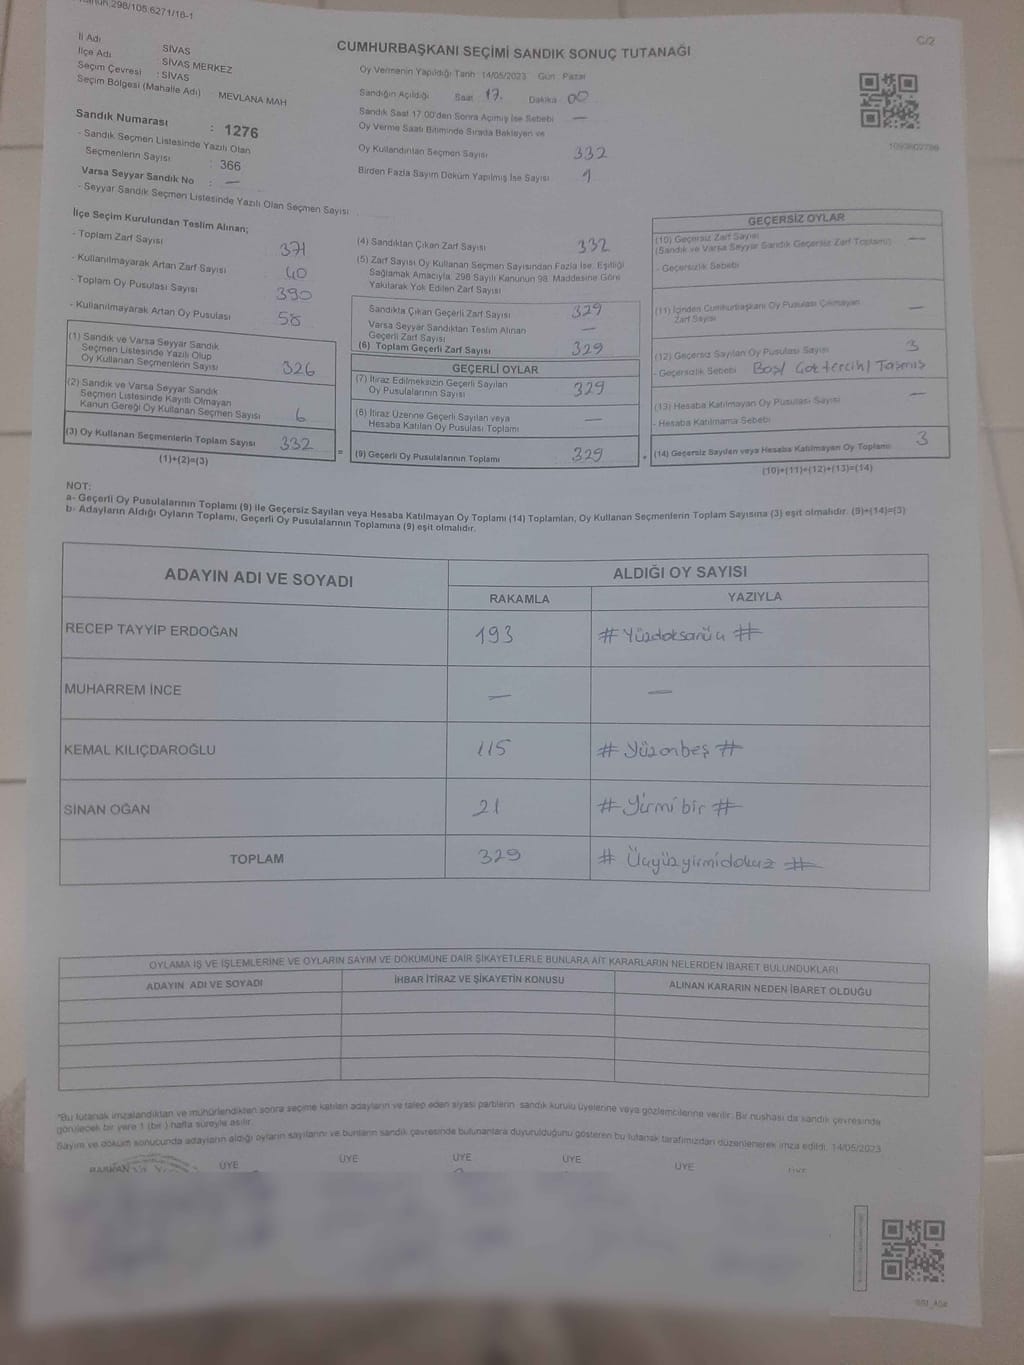 298/105,6271/18-1
C/2
İl Adı : SİVAS
İlçe Adı : SİVAS MERKEZ
Seçim Çevresi : SİVAS
Seçim Bölgesi (Mahalle Adı) : MEVLANA MAH
Sandık Numarası : 1276
- Sandık Seçmen Listesinde Yazılı Olan
Seçmenlerin Sayısı : 366
Varsa Seyyar Sandık No : —
- Seyyar Sandık Seçmen Listesinde Yazılı Olan Seçmen Sayısı
CUMHURBAŞKANI SEÇİMİ SANDIK SONUÇ TUTANAĞI
Oy Vermenin Yapıldığı Tarih 14/05/2023 Gün Pazar
Sandığın Açıldığı Saat 17. Dakika 00
Sandık Saat 17.00'den Sonra Açımış İse Sebebi —
Oy Verme Saati Bitiminde Sırada Bekleyen ve
Oy Kullandırılan Seçmen Sayısı 332
Birden Fazla Sayım Döküm Yapılmış İse Sayısı 1
İlçe Seçim Kurulundan Teslim Alınan;
- Toplam Zarf Sayısı 371
- Kullanılmayarak Artan Zarf Sayısı 40
- Toplam Oy Pusulası Sayısı 390
- Kullanılmayarak Artan Oy Pusulası 58
(1) Sandık ve Varsa Seyyar Sandık
Seçmen Listesinde Yazılı Olup
Oy Kullanan Seçmenlerin Sayısı 326
(2) Sandık ve Varsa Seyyar Sandık
Seçmen Listesinde Kayıtlı Olmayan
Kanun Gereği Oy Kullanan Seçmen Sayısı 6
(3) Oy Kullanan Seçmenlerin Toplam Sayısı 332
(1)+(2)=(3)
=
(4) Sandıktan Çıkan Zarf Sayısı 332
(5) Zarf Sayısı Oy Kullanan Seçmen Sayısından Fazla İse, Eşitliği
Sağlamak Amacıyla, 298 Sayılı Kanunun 98. Maddesine Göre
Yakılarak Yok Edilen Zarf Sayısı
Sandıkta Çıkan Geçerli Zarf Sayısı 329
Varsa Seyyar Sandıktan Teslim Alınan
Geçerli Zarf Sayısı —
(6) Toplam Geçerli Zarf Sayısı 329
GEÇERLİ OYLAR
(7) İtiraz Edilmeksizin Geçerli Sayılan
Oy Pusulalarının Sayısı 329
(8) İtiraz Üzerine Geçerli Sayılan veya
Hesaba Katılan Oy Pusulası Toplamı —
(9) Geçerli Oy Pusulalarının Toplamı 329
+
GEÇERSİZ OYLAR
(10) Geçersiz Zarf Sayısı —
(Sandık ve Varsa Seyyar Sandık Geçersiz Zarf Toplamı)
- Geçersizlik Sebebi
(11) İçinden Cumhurbaşkanı Oy Pusulası Çıkmayan
Zarf Sayısı —
(12) Geçersiz Sayılan Oy Pusulası Sayısı 3
- Geçersizlik Sebebi Boş/ Çok tercih/ Taşmış
(13) Hesaba Katılmayan Oy Pusulası Sayısı —
- Hesaba Katılmama Sebebi
(14) Geçersiz Sayılan veya Hesaba Katılmayan Oy Toplamı 3
(10)+(11)+(12)+(13)=(14)
NOT:
a- Geçerli Oy Pusulalarının Toplamı (9) ile Geçersiz Sayılan veya Hesaba Katılmayan Oy Toplamı (14) Toplamları, Oy Kullanan Seçmenlerin Toplam Sayısına (3) eşit olmalıdır. (9)+(14)=(3)
b- Adayların Aldığı Oyların Toplamı, Geçerli Oy Pusulalarının Toplamına (9) eşit olmalıdır.
ADAYIN ADI VE SOYADI ALDIĞI OY SAYISI
RAKAMLA YAZIYLA
RECEP TAYYİP ERDOĞAN 193 # Yüzdoksanüç #
MUHARREM İNCE — —
KEMAL KILIÇDAROĞLU 115 # Yüzonbeş #
SİNAN OĞAN 21 # Yirmi bir #
TOPLAM 329 # Üçyüzyirmidokuz #
OYLAMA İŞ VE İŞLEMLERİNE VE OYLARIN SAYIM VE DÖKÜMÜNE DAİR ŞİKAYETLERLE BUNLARA AİT KARARLARIN NELERDEN İBARET BULUNDUKLARI
ADAYIN ADI VE SOYADI İHBAR İTİRAZ VE ŞİKAYETİN KONUSU ALINAN KARARIN NEDEN İBARET OLDUĞU
*Bu tutanak imzalandıktan ve mühürlendikten sonra seçime katılan adayların ve talep eden siyasi partilerin sandık kurulu üyelerine veya gözlemcilerine verilir. Bir nushası da sandık çevresinde
görülecek bir yere 1 (bir ) hafta süreyle asılır.
Sayım ve döküm sonucunda adayların aldığı oyların sayılarını ve bunların sandık çevresinde bulunanlara duyurulduğunu gösteren bu tutanak tarafımızdan düzenlenerek imza edildi. 14/05/2023
BAŞKAN ÜYE ÜYE ÜYE ÜYE ÜYE ÜYE